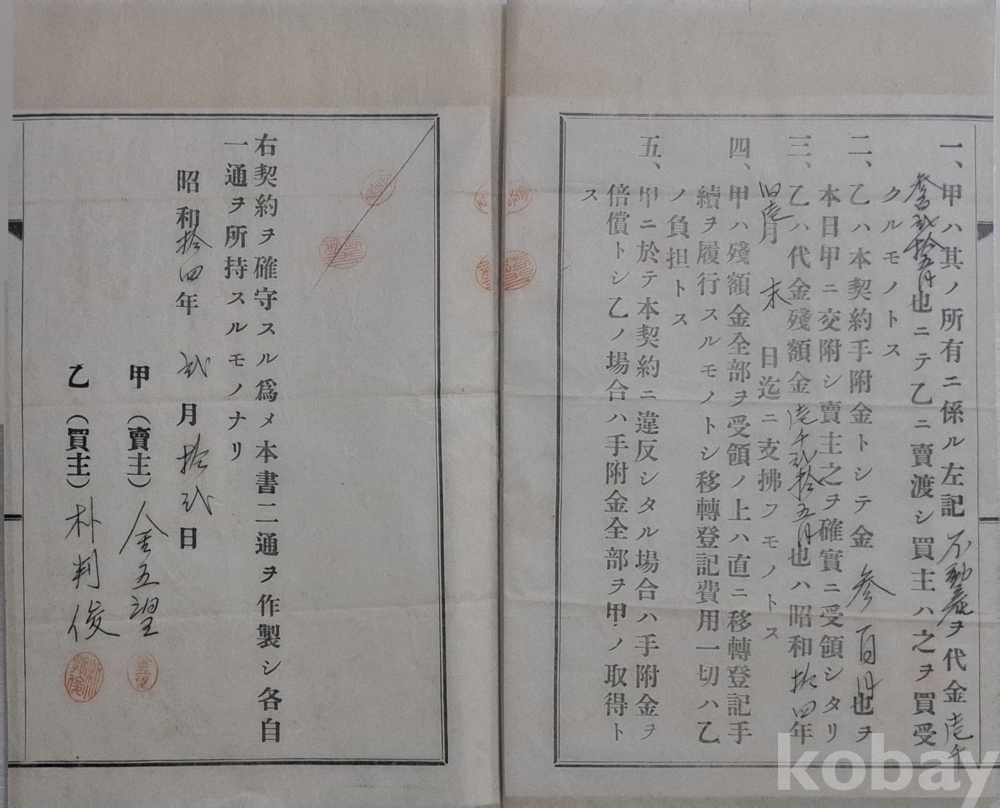 一、甲ハ其ノ所有ニ係ル左記不動産ヲ代金壱千
参百貳拾五円也ニテ乙ニ賣渡シ買主ハ之ヲ買受
クルモノトス
二、乙ハ本契約手附金トシテ金参百円也ヲ
本日甲ニ交附シ賣主之ヲ確實ニ受領シタリ
三、乙ハ代金殘額金壱千貳拾五円也ハ昭和拾四年
旧壱月末日迄ニ支拂フモノトス
四、甲ハ殘額金全部ヲ受領ノ上ハ直ニ移轉登記手
續ヲ履行スルモノトシ移轉登記費用一切ハ乙
ノ負担トス
五、甲ニ於テ本契約ニ違反シタル場合ハ手附金ヲ
倍償トシ乙ノ場合ハ手附金全部ヲ甲ノ取得ト
ス
右契約ヲ確守スル爲メ本書二通ヲ作製シ各自
一通ヲ所持スルモノナリ
昭和拾四年貳月拾貳日
甲(賣主)金五望
乙(買主)朴判俊
kobay